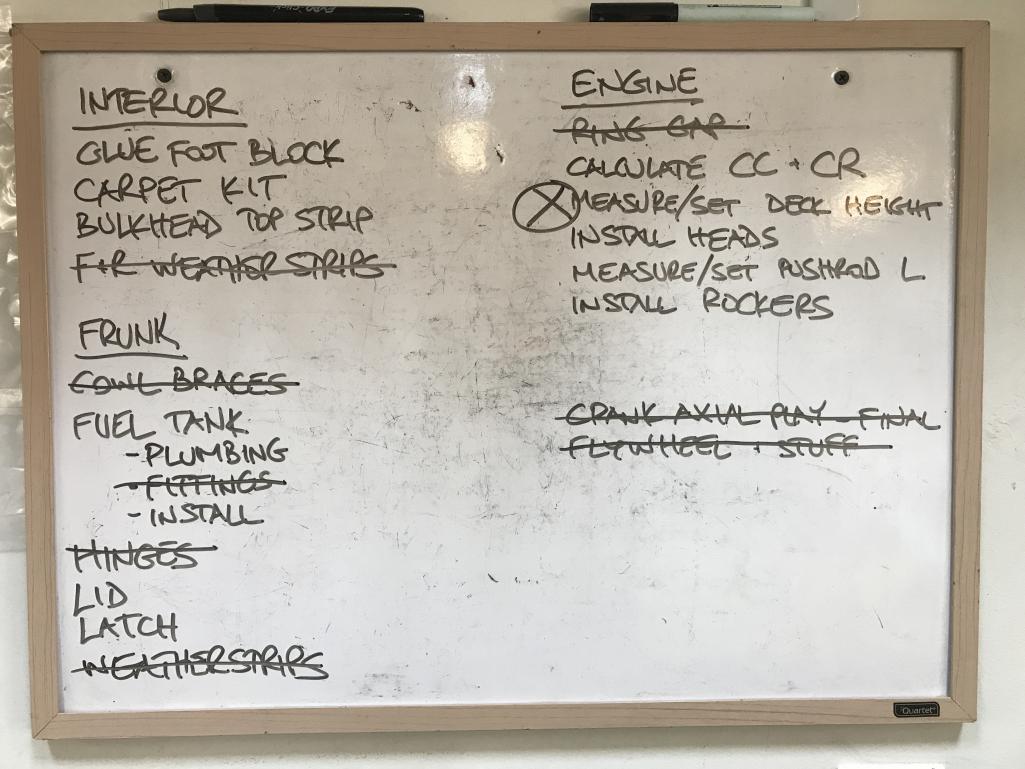 INTERIOR
GLUE FOOT BLOCK
CARPET KIT
BULKHEAD TOP STRIP
F+R WEATHER STRIPS
FRUNK
COWL BRACES
FUEL TANK
- PLUMBING
- FITTINGS
- INSTALL
HINGES
LID
LATCH
WEATHERSTRIPS
ENGINE
RING GAP
CALCULATE CC + CR
MEASURE/SET DECK HEIGHT
INSTALL HEADS
MEASURE/SET PUSHROD L
INSTALL ROCKERS
CRANK AXIAL PLAY - FINAL
FLYWHEEL + STUFF
Quartet